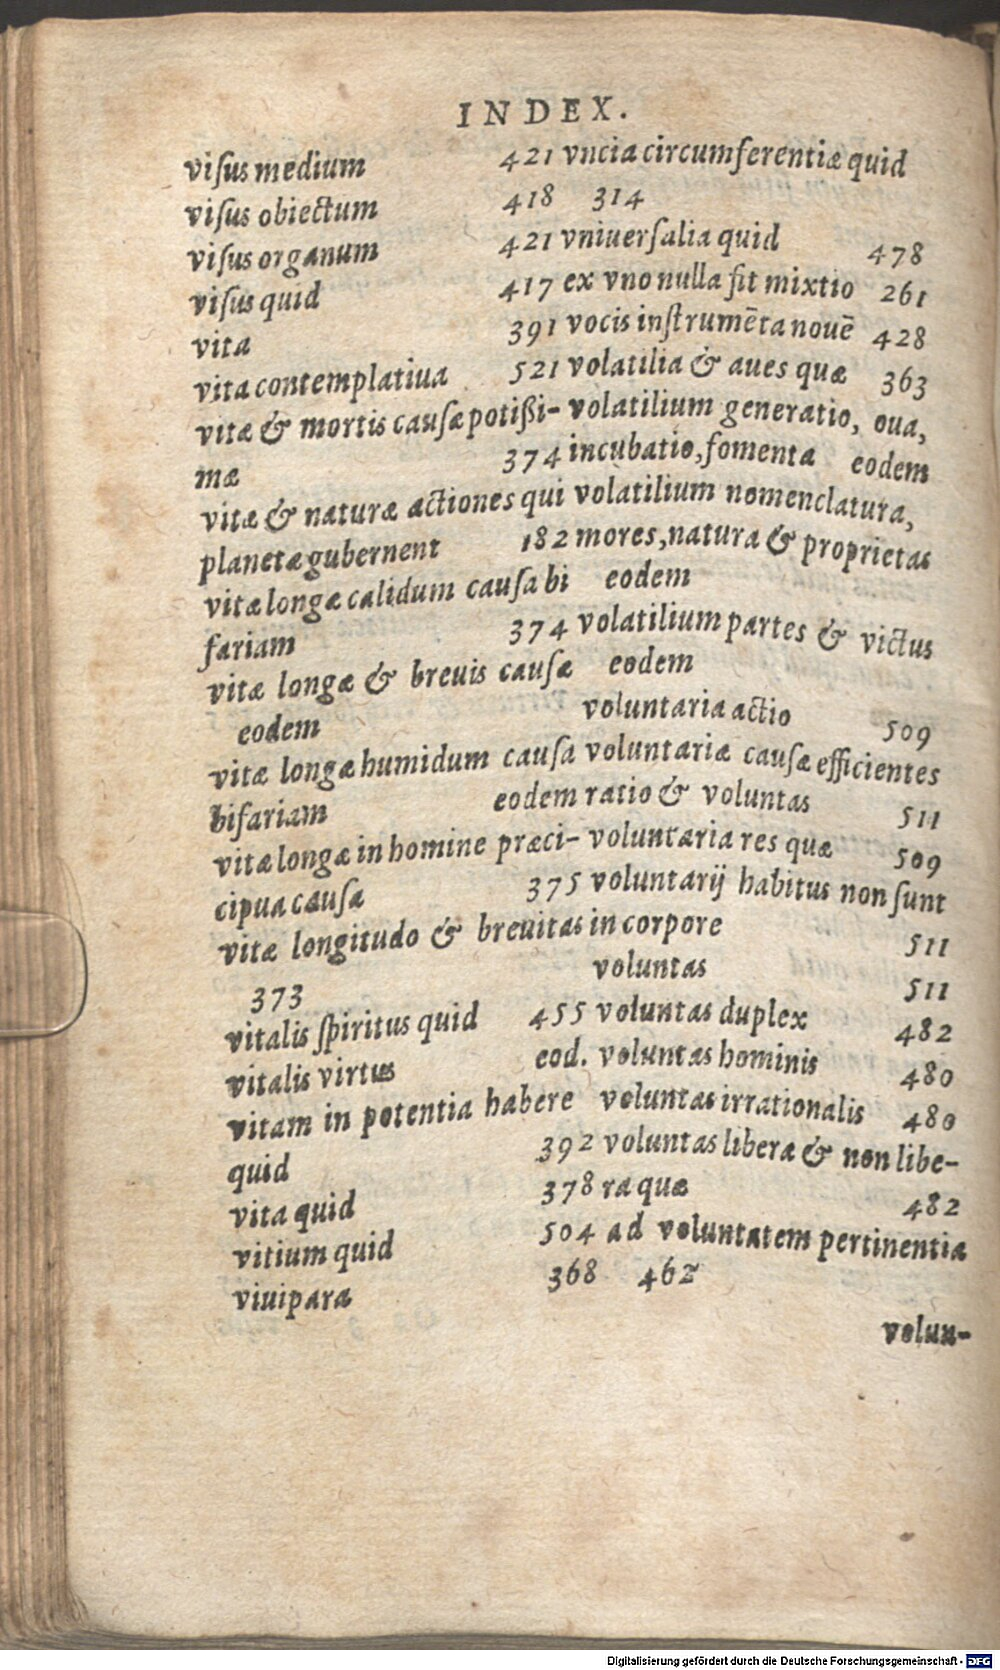 INDEX.
viſus medium 421
viſus obiectum 418
viſus organum 421
viſus quid 417
vita 391
vita contemplatiua 521
vitæ & mortis cauſæ potißi-
mæ 374
vitæ & naturæ actiones qui
planetæ gubernent 182
vitæ longæ calidum cauſa bi
fariam 374
vitæ longæ & breuis cauſæ
eodem
vitæ longæ humidum cauſa
bifariam eodem
vitæ longæ in homine præci-
cipua cauſa 375
vitæ longitudo & breuitas
373
vitalis ſpiritus quid 455
vitalis virtus eod.
vitam in potentia habere
quid 392
vita quid 378
vitium quid 504
viuipara 368
vncia circumferentiæ quid
314
vniuerſalia quid 478
ex vno nulla fit mixtio 261
vocis inſtrumēta nouē 428
volatilia & aues quæ 363
volatilium generatio, oua,
incubatio, fomenta eodem
volatilium nomenclatura,
mores, natura & proprietas
eodem
volatilium partes & victus
eodem
voluntaria actio 509
voluntariæ cauſæ efficientes
ratio & voluntas 511
voluntaria res quæ 509
voluntarij habitus non ſunt
in corpore 511
voluntas 511
voluntas duplex 482
voluntas hominis 480
voluntas irrationalis 480
voluntas libera & non libe-
ra quæ 482
ad voluntatem pertinentia
462
volun-
Digitalisierung gefördert durch die Deutsche Forschungsgemeinschaft - DFG